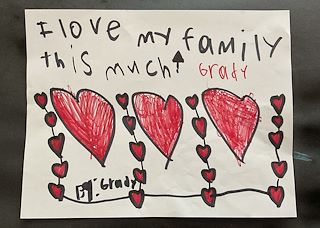 I love my family
this much! Grady
By: Grady